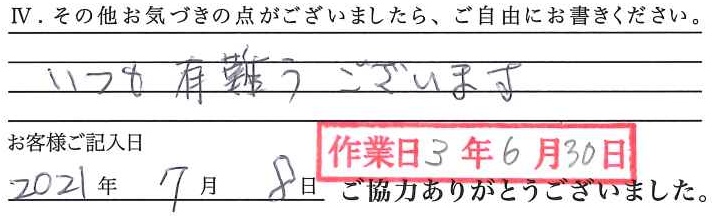 Ⅳ．その他お気づきの点がございましたら、ご自由にお書きください。
いつも有難うございます
お客様ご記入日
作業日3年6月30日
2021年7月8日
ご協力ありがとうございました。